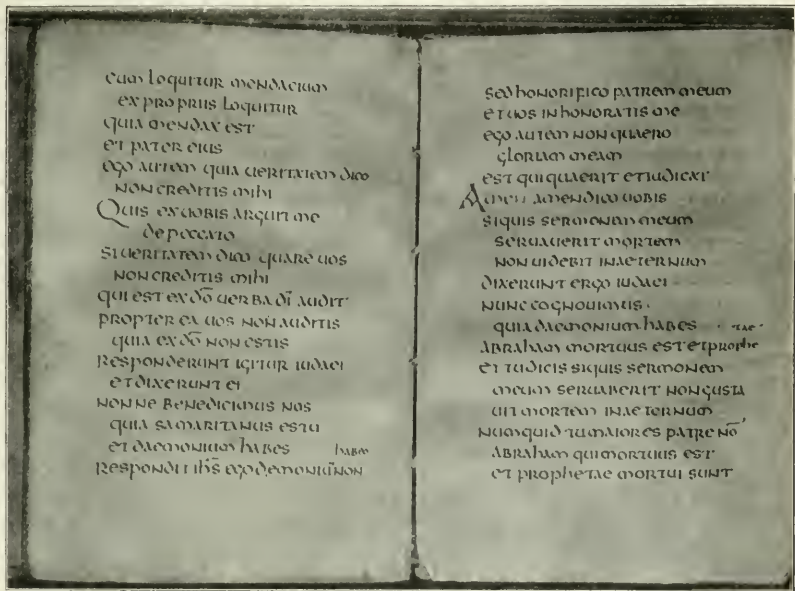 cum loquitur mendacium
ex propriis loquitur
quia mendax est
et pater eius
ego autem quia ueritatem dico
non creditis mihi
Quis ex uobis arguit me
de peccato
si ueritatem dico quare uos
non creditis mihi
qui est ex dō uerba dī audit
propter ea uos non auditis
quia ex dō non estis
responderunt igitur iudaei
et dixerunt ei
nonne benedicimus nos
quia samaritanus es tu
et daemonium habes
habeo
respondit ihs̄ ego demoniū non
sed honorifico patrem meum
et uos inhonoratis me
ego autem non quaero
gloriam meam
est qui quaerit et iudicat
Amen amen dico uobis
si quis sermonem meum
seruauerit mortem
non uidebit in aeternum
dixerunt ergo iudaei
nunc cognouimus
quia daemonium habes
tae
abraham mortuus est et prophe
et tu dicis si quis sermonem
meum seruaberit non gusta
uit mortem in aeternum
numquid tu maior es patre nō
abraham qui mortuus est
et prophetae mortui sunt